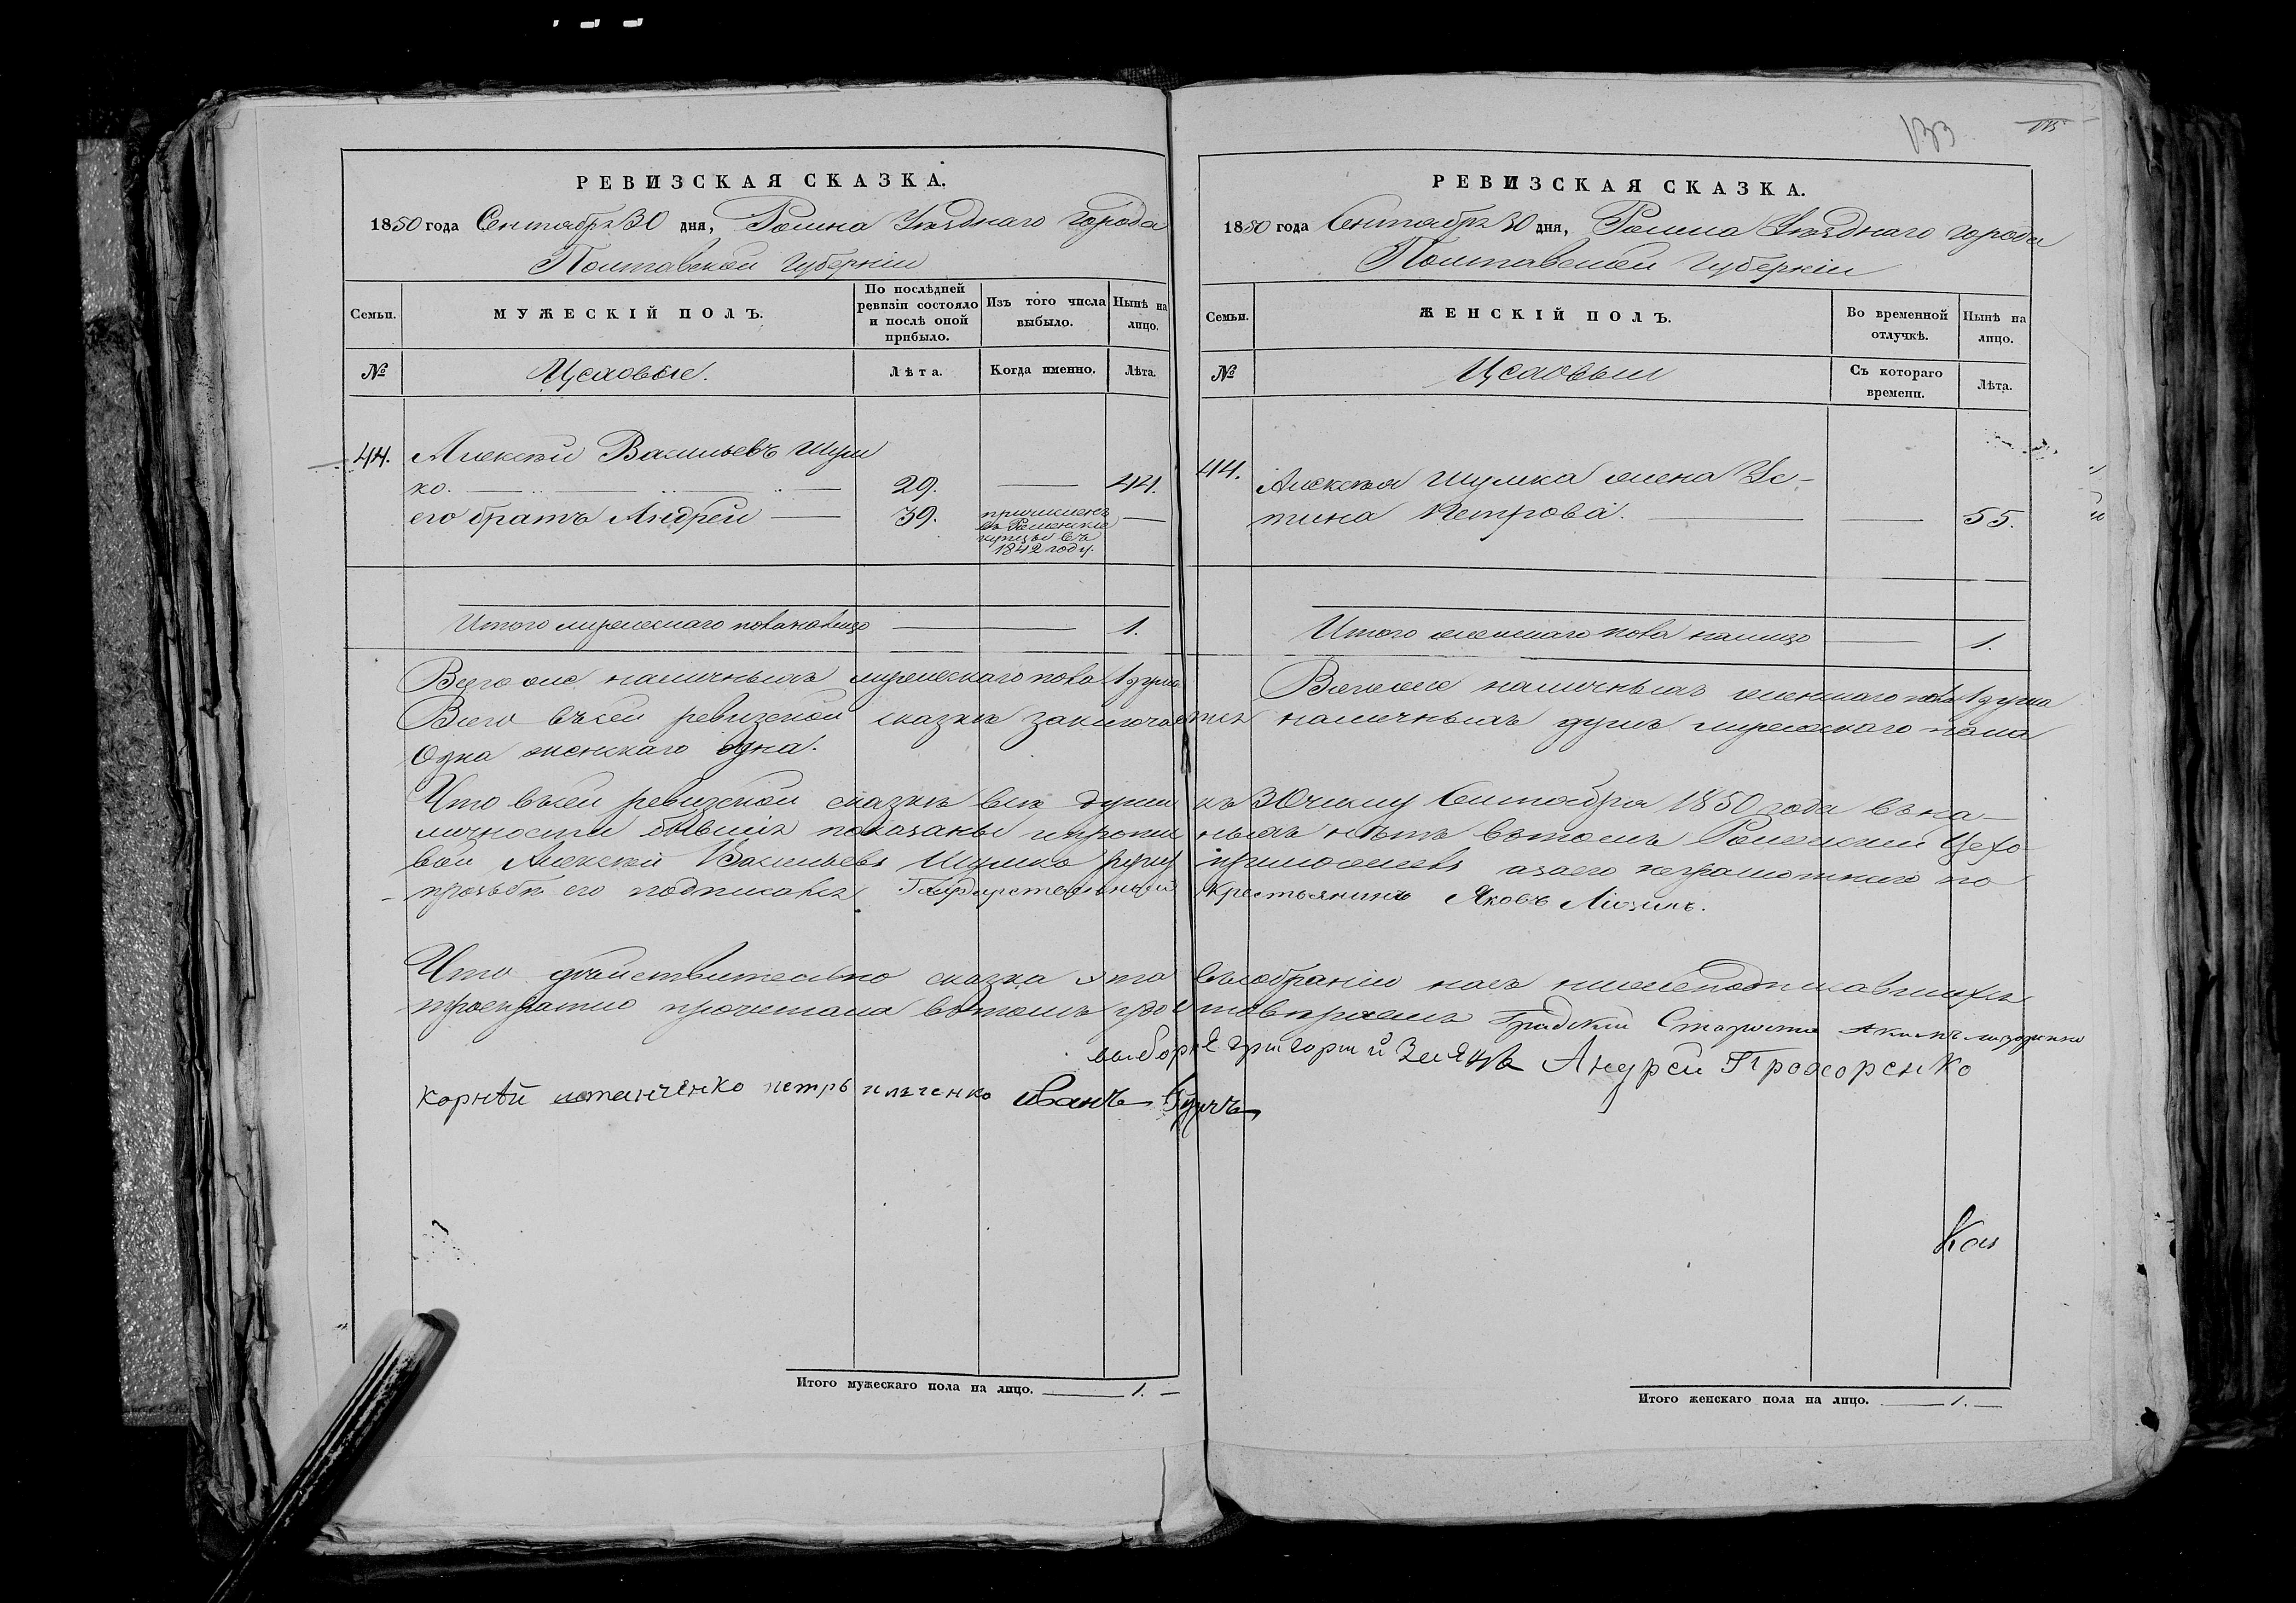 133
РЕВИЗСКАЯ СКАЗКА.
1850 года Сентября 30 дня, Ромна Уѣзднаго города
Полтавской Губерніи
Семьи.
МУЖЕСКІЙ ПОЛЪ.
По послѣдней ревизіи состояло и послѣ оной прибыло.
Изъ того числа выбыло.
Нынѣ на лицо.
№
Цеховые.
Лѣта.
Когда именно.
Лѣта.
44. Алексѣй Васильевъ Шум
ко. 29. 44.
его братъ Андрей 39.
причисленъ
въ Роменскіе
купцы въ
1842 году.
Итого мужескаго пола налицо 1.
РЕВИЗСКАЯ СКАЗКА.
1850 года Сентября 30 дня, Ромна Уѣзднаго города
Полтавской Губерніи
Семьи.
ЖЕНСКІЙ ПОЛЪ.
Во временной отлучкѣ.
Нынѣ на лицо.
№
Цеховыи
Съ котораго времени.
Лѣта.
44. Алексѣя Шумка жена Ус-
тина Петрова. 55.
Итого женскаго пола налицо 1.
Всего же наличныхъ мужескаго пола 1 душа
Всего же наличныхъ женскаго пола 1 душа
Всего въ сей ревизской сказкѣ заключается наличныхъ душъ мужескаго пола
Одна женскаго одна.
Что въ сей ревизской сказкѣ всѣ души къ 30 числу Сентября 1850 года въ на-
личности бывшіе показаны и нѣтъ въ томъ Роменский Цехо-
вой Алексѣй Васильевъ Шумко руку приложилъ а за его неграмотнаго по
прозьбѣ его подписался Государственный крестьянинъ Яковъ
Что дѣйствительно сказка эта въ собраніи насъ нижеподписавшихся
троекратно прочитана въ томъ удостовѣряемъ Градский Староста Акимъ
выборнѣ григорий Андрей Прохоренко
Корнѣй петръ иванъ
Итого мужескаго пола на лицо. 1.
Итого женскаго пола на лицо. 1.